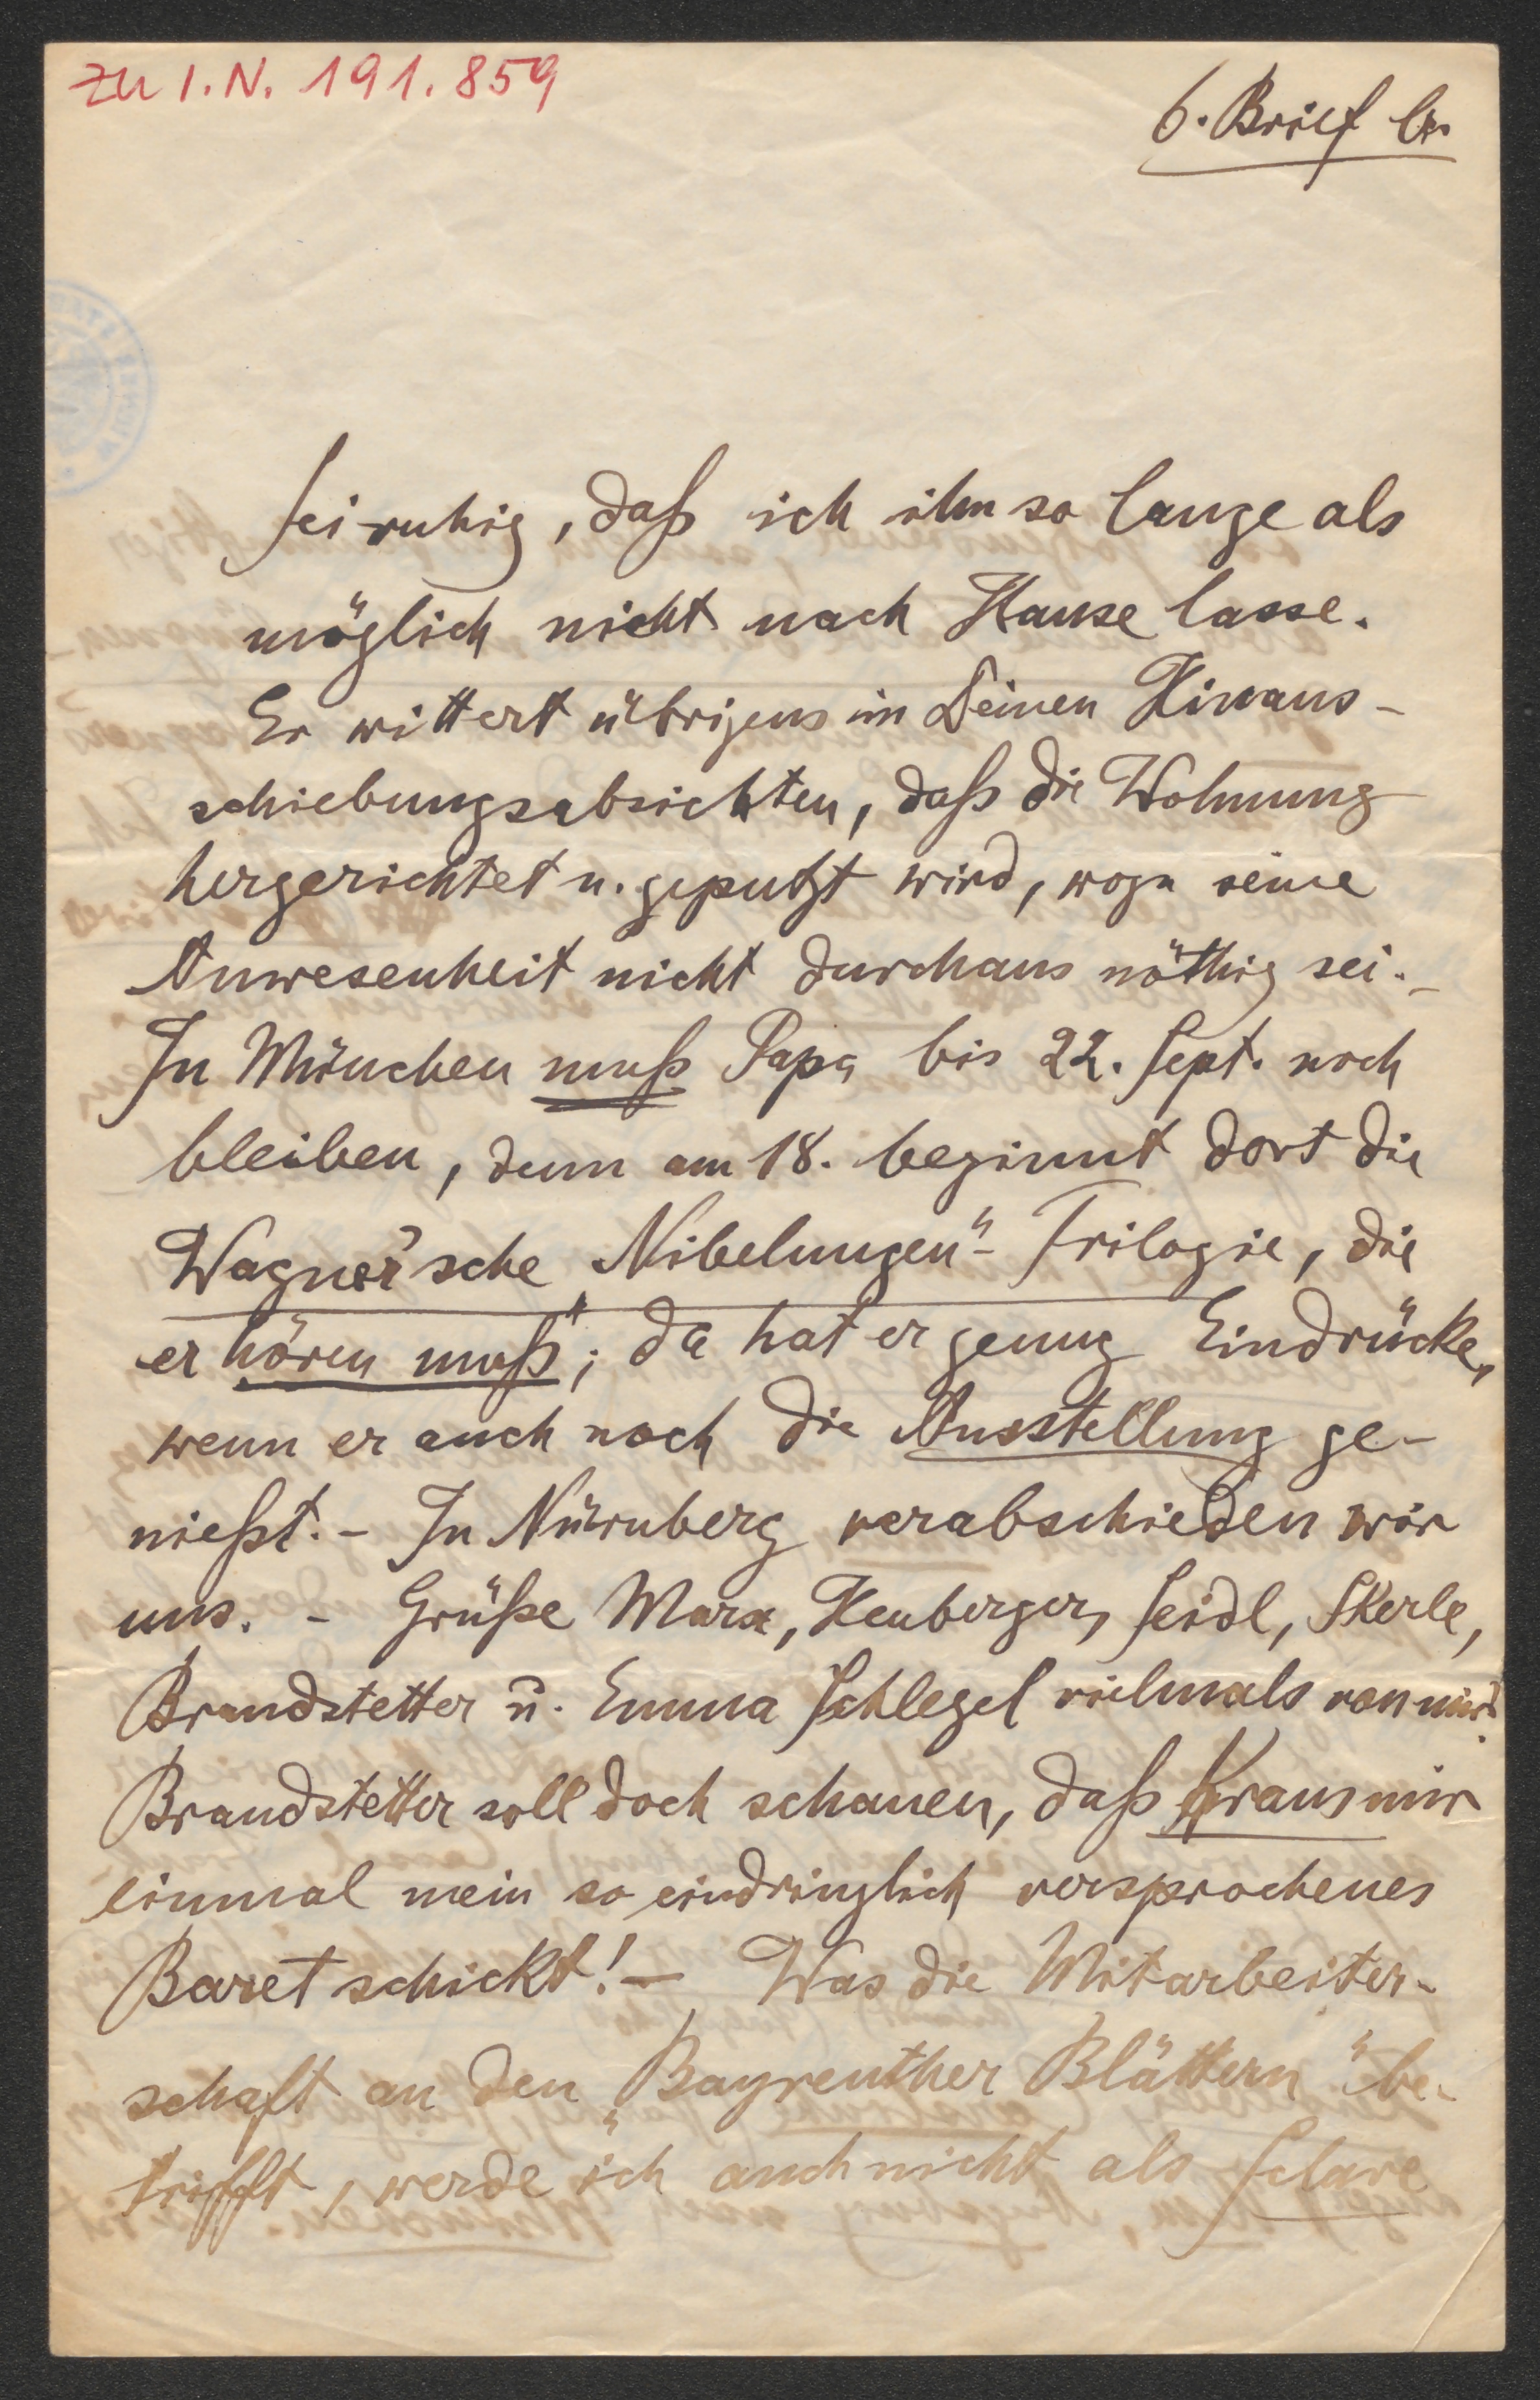 zu I.N. 191.859
6. Brief
Sei ruhig, daß ich ihn so lange als
möglich nicht nach Hause lasse.
Er wittert übrigens in Deinen Hinaus-
schiebungsabsichten, daß die Wohnung
hergerichtet u. geputzt wird, wozu seine
Anwesenheit nicht durchaus nöthig sei. –
In München muß Papa bis 22. Sept. noch
bleiben, denn am 18. beginnt dort die
Wagner'sche „Nibelungen“-Trilogie, die
er hören muß; da hat er genug Eindrücke,
wenn er auch noch die Ausstellung ge-
nießt. – In Nürnberg verabschieden wir
uns. – Grüße Marx, Heuberger, Seidl, Skerle,
Brandstetter u. Emma Schlegel vielmals von mir.
Brandstetter soll doch schauen, daß Kraus mir
einmal mein so eindringlich versprochenes
Baret schickt! – Was die Mitarbeiter-
schaft an den „Bayreuther Blättern“ be-
trifft, werde ich auch nicht als Sclave